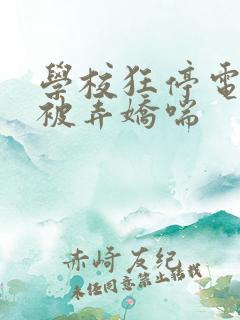 學校狂停電
被弄嬌喘
赤崎友紀
未經同意禁止轉載